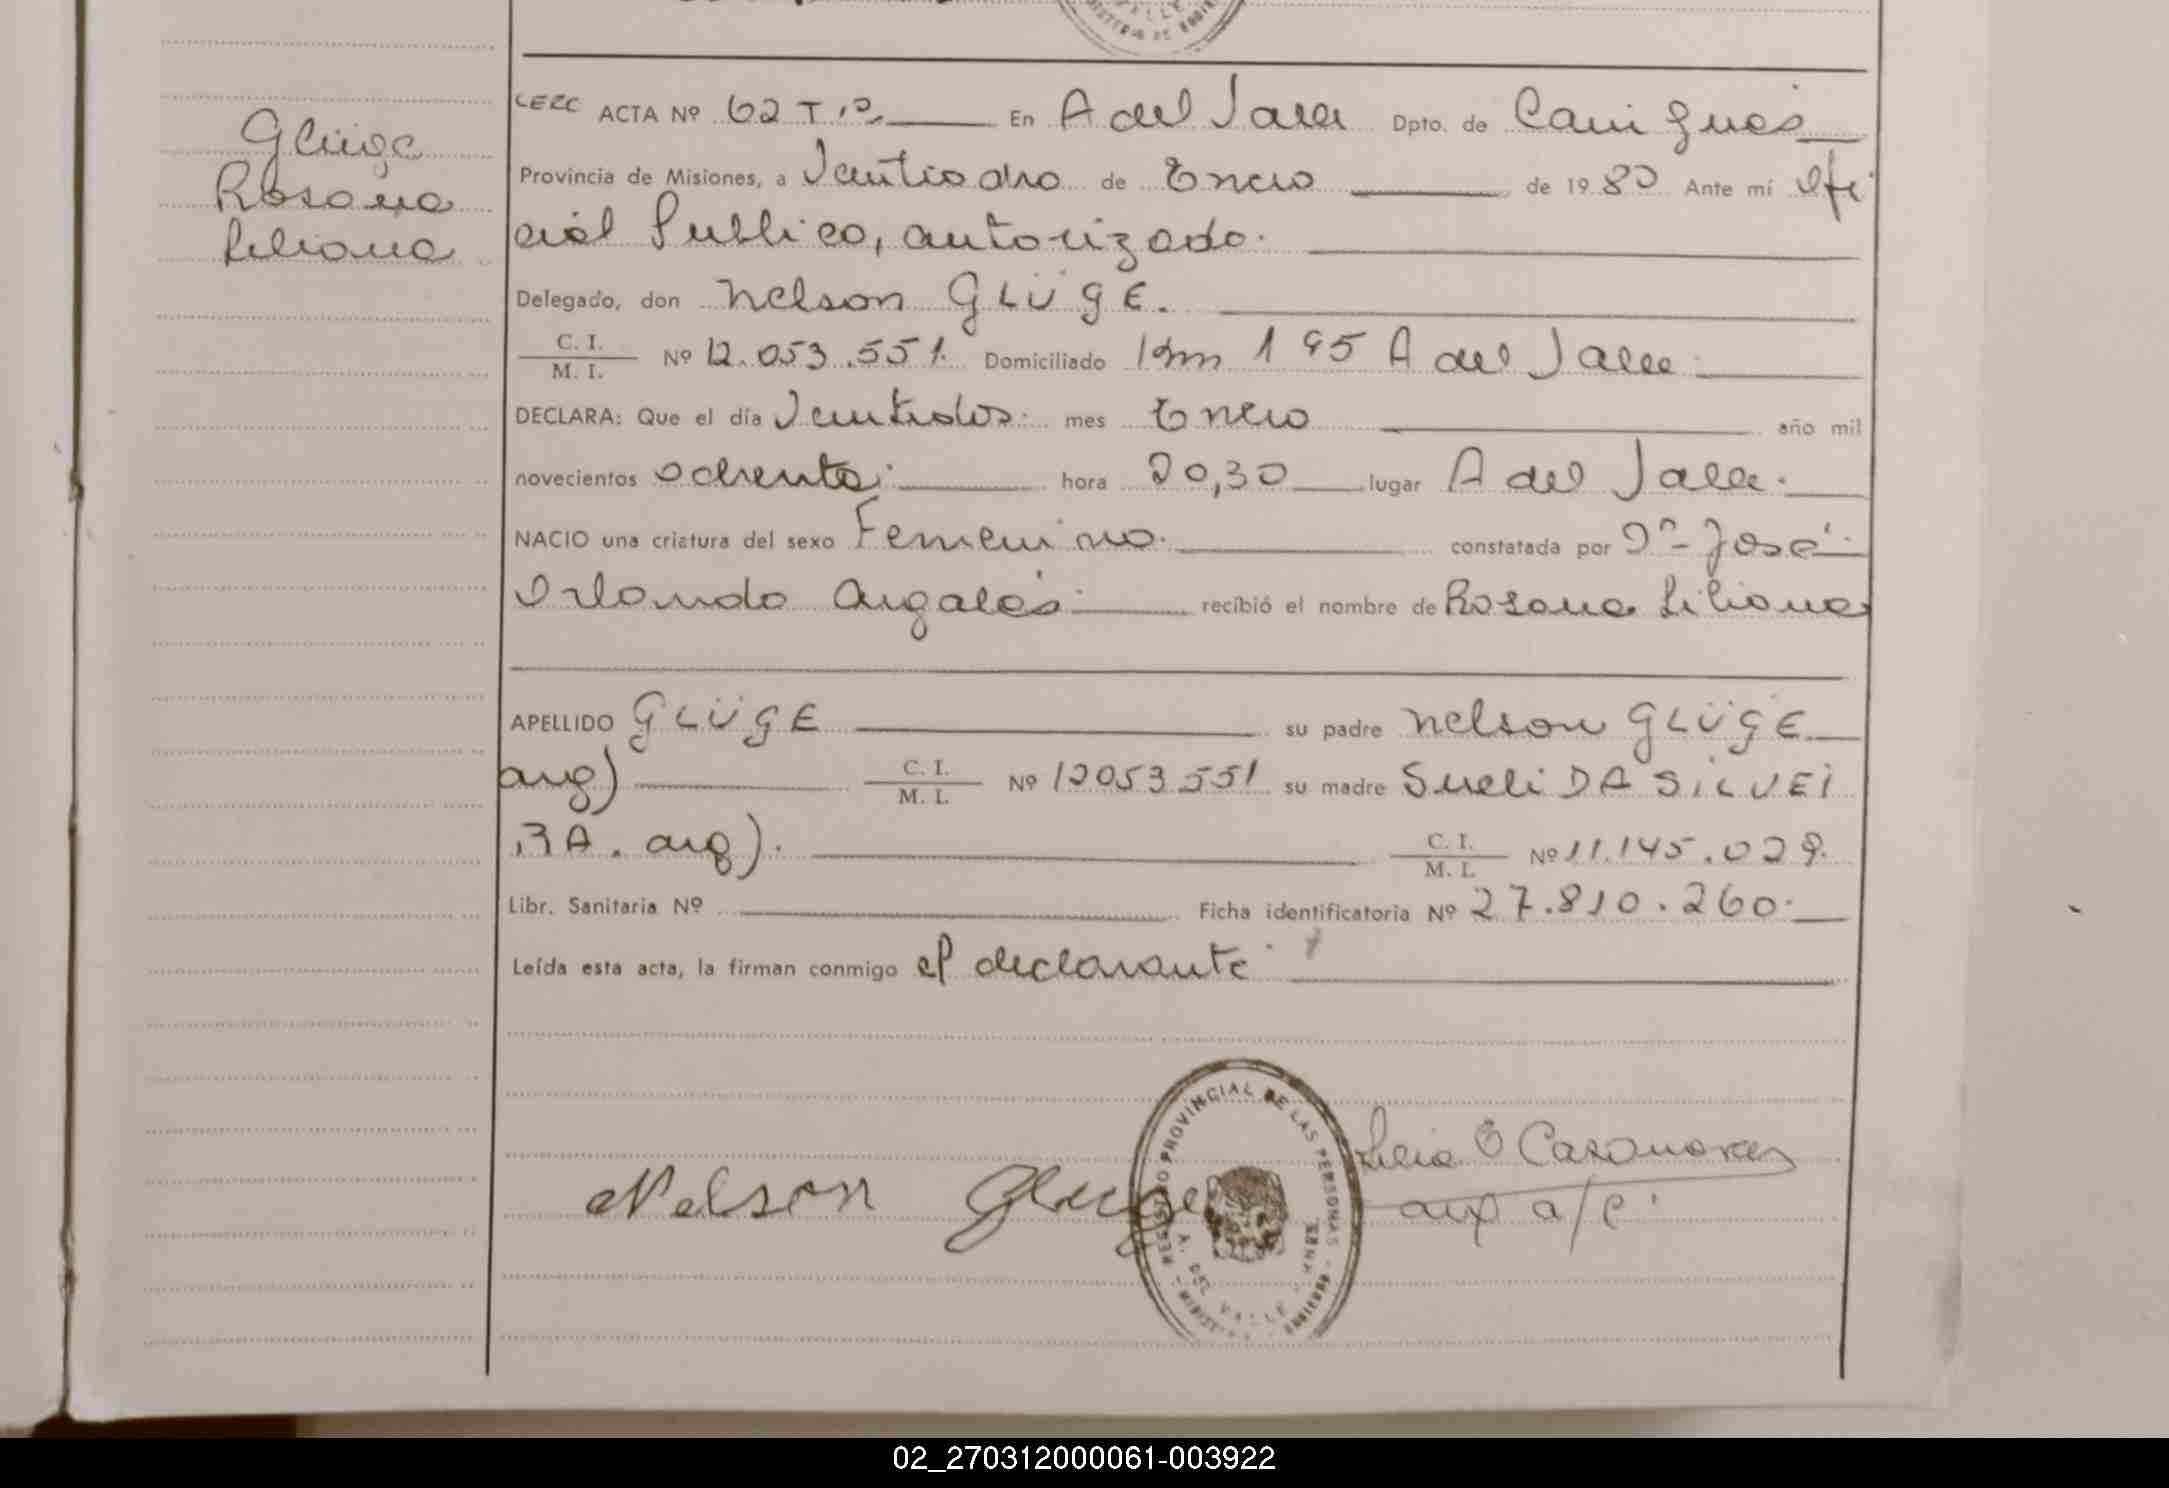 VALLE
REGISTRO DE
Glüge
Rosana
Liliana
ACTA Nº 62 T 1º En A del Valle Dpto. de Cain guás
Provincia de Misiones, a Ventiocho de Enero de 1980 Ante mí ofi
cial Publico, autorizado.
Delegado, don Nelson GLÜGE.
C. I.
M. I. Nº 12.053.551. Domiciliado Km 195 A del Valle
DECLARA: Que el día Ventidos. mes Enero año mil
novecientos ochenta. hora 20,30 lugar A del Valle.
NACIO una criatura del sexo Femenino. constatada por Dn- José
Orlando Argalás recibió el nombre de Rosana Liliana
APELLIDO GLÜGE su padre Nelson GLÜGE
arg) C. I.
M. I. Nº 12053.551 su madre Sueli DA SiLVEi
RA. arg). C. I.
M. I. Nº 11.145.029.
Libr. Sanitaria Nº Ficha identificatoria Nº 27.810.260.
Leída esta acta, la firman conmigo el declarante
Nelson Gluge
REGISTRO PROVINCIAL DE LAS PERSONAS
A. DEL VALLE
Lilia E Casanovas
aux a/c.
02_270312000061-003922